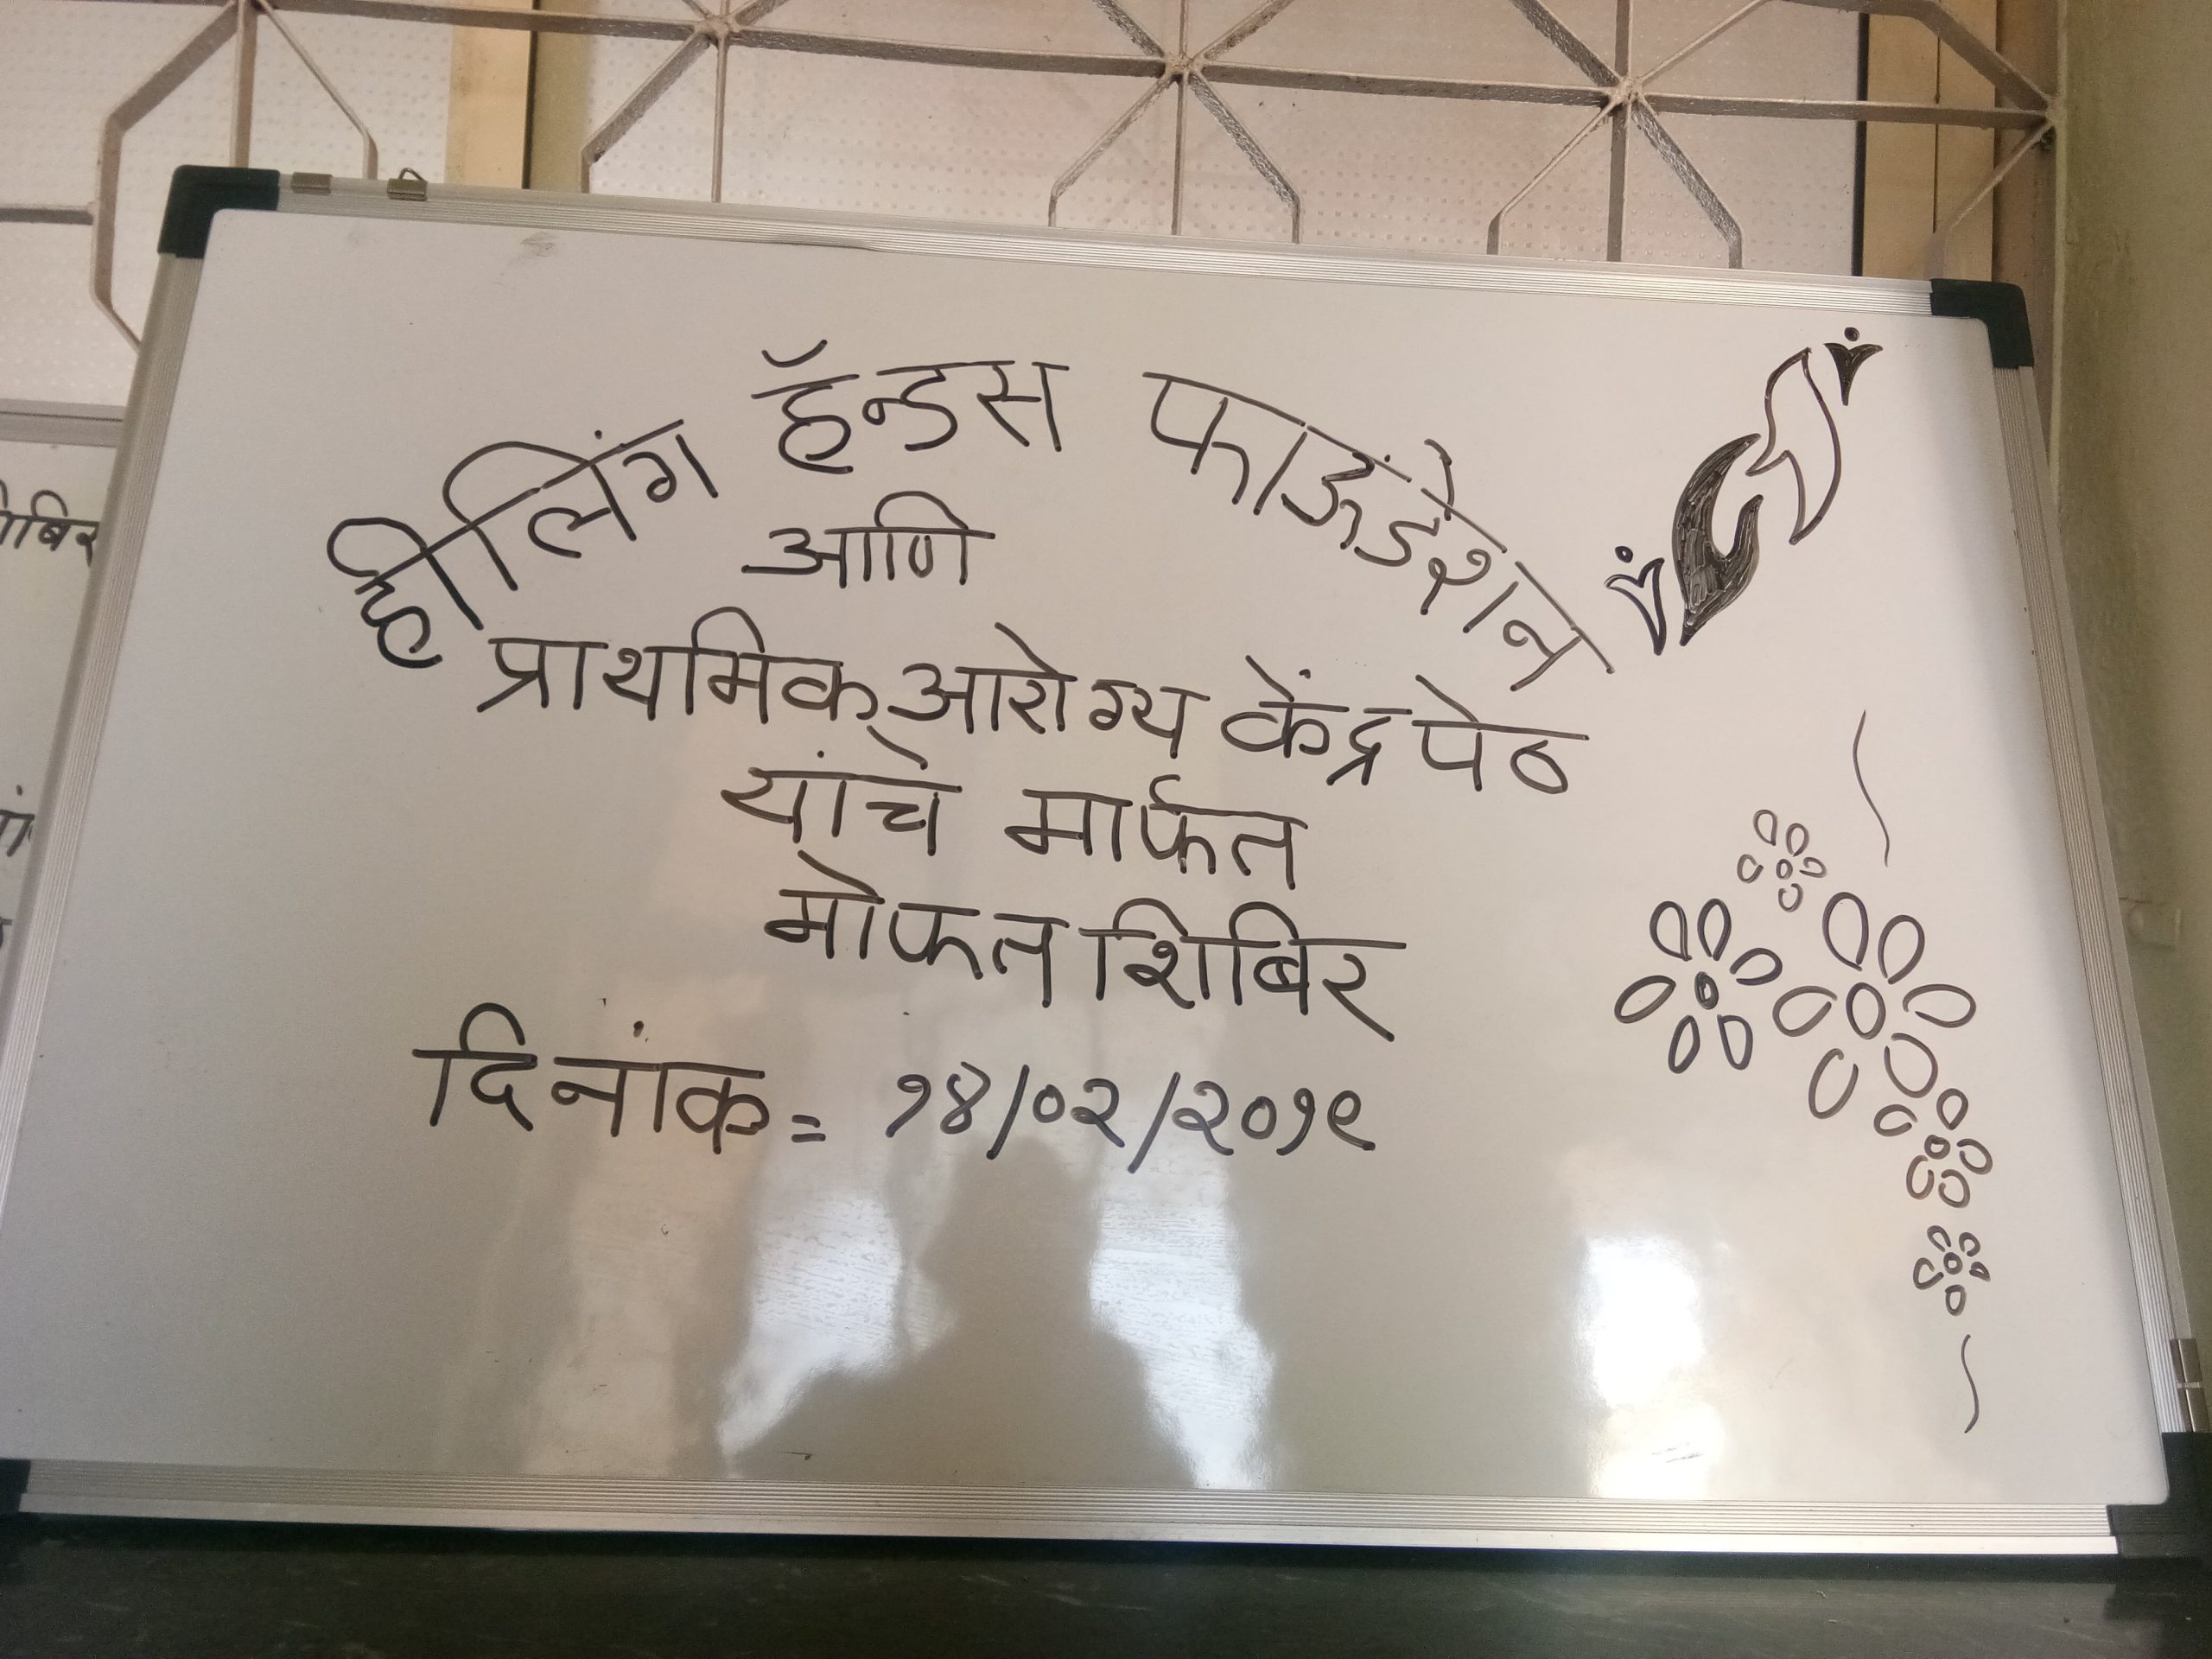 हीलिंग हॅन्डस फाऊंडेशन
आणि
प्राथमिक आरोग्य केंद्र पेठ
यांचे मार्फत
मोफत शिबिर
दिनांक = १४/०२/२०१९